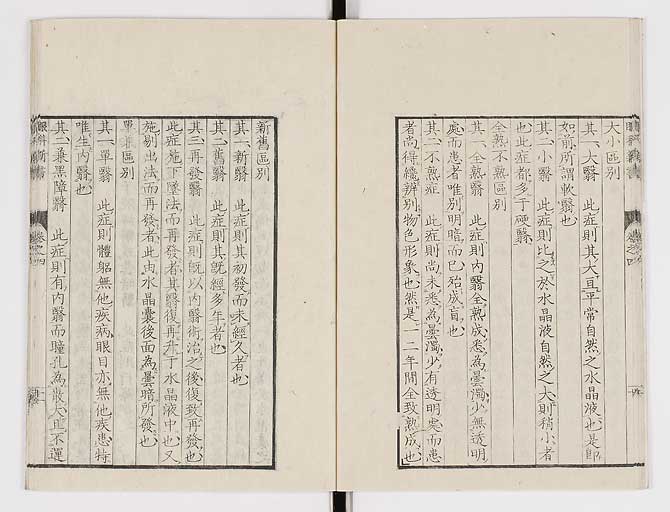 大小區別
其一大翳　此症則其大且平常自然之水晶液也是卽
如前所謂軟翳也
其二小翳　此症則比之於水晶液自然之大則稍小者
也此症都多于硬翳
全熟不熟區別
其一全熟翳　此症則内翳全熟成悉為曇濁少無透明
處而患者唯別明暗而已殆成盲也
其二不熟症　此症則尚未悉為曇濁少有透明處而患
者尚得纔辨別物色形象也然是一二年間全致熟成也
新舊區別
其一新翳　此症則其初發而未經久者也
其二舊翳　此症則其既經多年者也
其三再發翳　此症則既以内翳術治之後復致再發也
此症施下墜法而再發者其翳復再升于水晶液中也又
施剔出法而再發者此由水晶囊後面為曇暗所發也
單兼區別
其一單翳　此症則體軀無他疾病眼目亦無他疾患特
唯生内翳也
其二兼黑障翳　此症則有内翳而瞳孔為散大且不運
眼科新書
卷之四